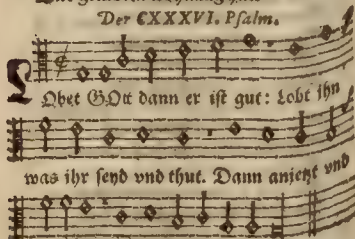 Der CXXXVI. Psalm.
LObet GOtt dann er ist gut: Lobt ihn
was ihr seyd vnd thut. Dann anjetzt vnd